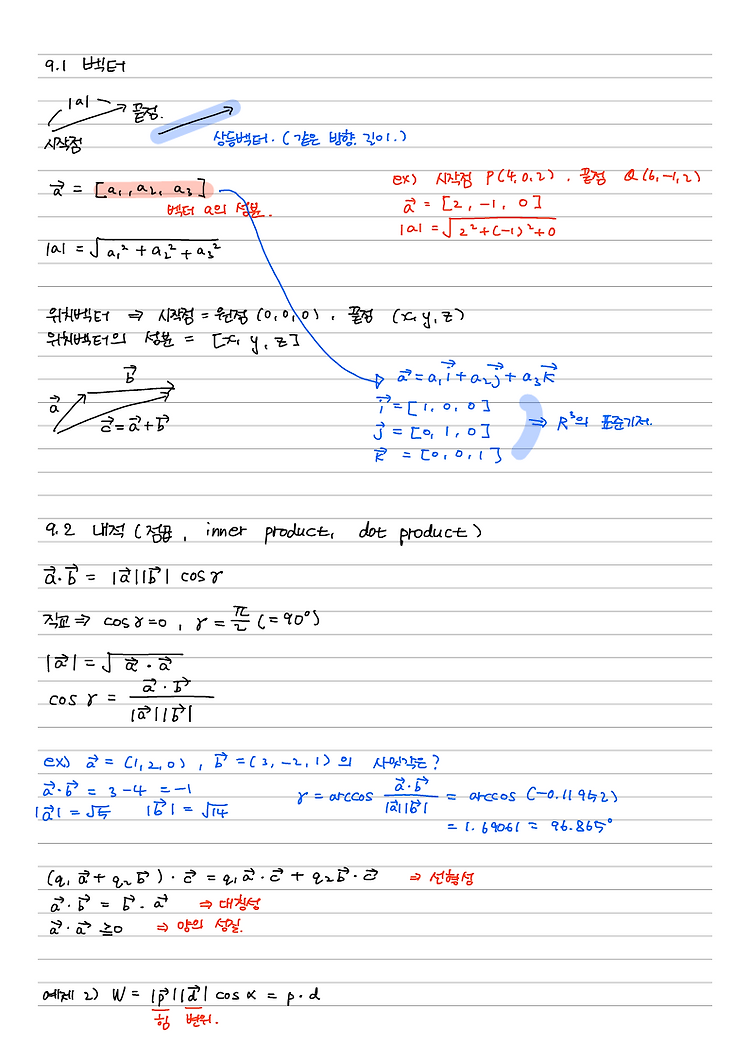 9.1 벡터
|a|
끝점.
시작점
상등벡터. (같은 방향. 길이.)
a⃗ = [a₁, a₂, a₃]
벡터 a의 성분.
ex) 시작점 P(4,0,2), 끝점 Q(6,-1,2)
a⃗ = [2, -1, 0]
|a| = √(2²+(-1)²+0)
|a| = √(a₁² + a₂² + a₃²)
위치벡터 ⇒ 시작점 = 원점 (0,0,0), 끝점 (x,y,z)
위치벡터의 성분 = [x, y, z]
b⃗
a⃗
c⃗ = a⃗ + b⃗
a⃗ = a₁i⃗ + a₂j⃗ + a₃k⃗
i⃗ = [1, 0, 0]
j⃗ = [0, 1, 0]
k⃗ = [0, 0, 1]
⇒ R³의 표준기저.
9.2 내적 (점곱, inner product, dot product)
a⃗·b⃗ = |a⃗||b⃗| cosγ
직교 ⇒ cosγ=0, γ = π/2 (=90°)
|a⃗| = √(a⃗·a⃗)
cosγ = a⃗·b⃗ / |a⃗||b⃗|
ex) a⃗ = (1,2,0), b⃗ = (3,-2,1)의 사잇각은?
a⃗·b⃗ = 3-4 = -1
|a⃗| = √5 |b⃗| = √14
γ = arccos a⃗·b⃗ / |a⃗||b⃗| = arccos (-0.11952)
= 1.69061 = 96.865°
(q₁a⃗ + q₂b⃗)·c⃗ = q₁a⃗·c⃗ + q₂b⃗·c⃗ ⇒ 선형성
a⃗·b⃗ = b⃗·a⃗ ⇒ 대칭성
a⃗·a⃗ ≧0 ⇒ 양의 성질.
예제 2) W = |p⃗||d⃗| cosα = p·d
힘 변위.